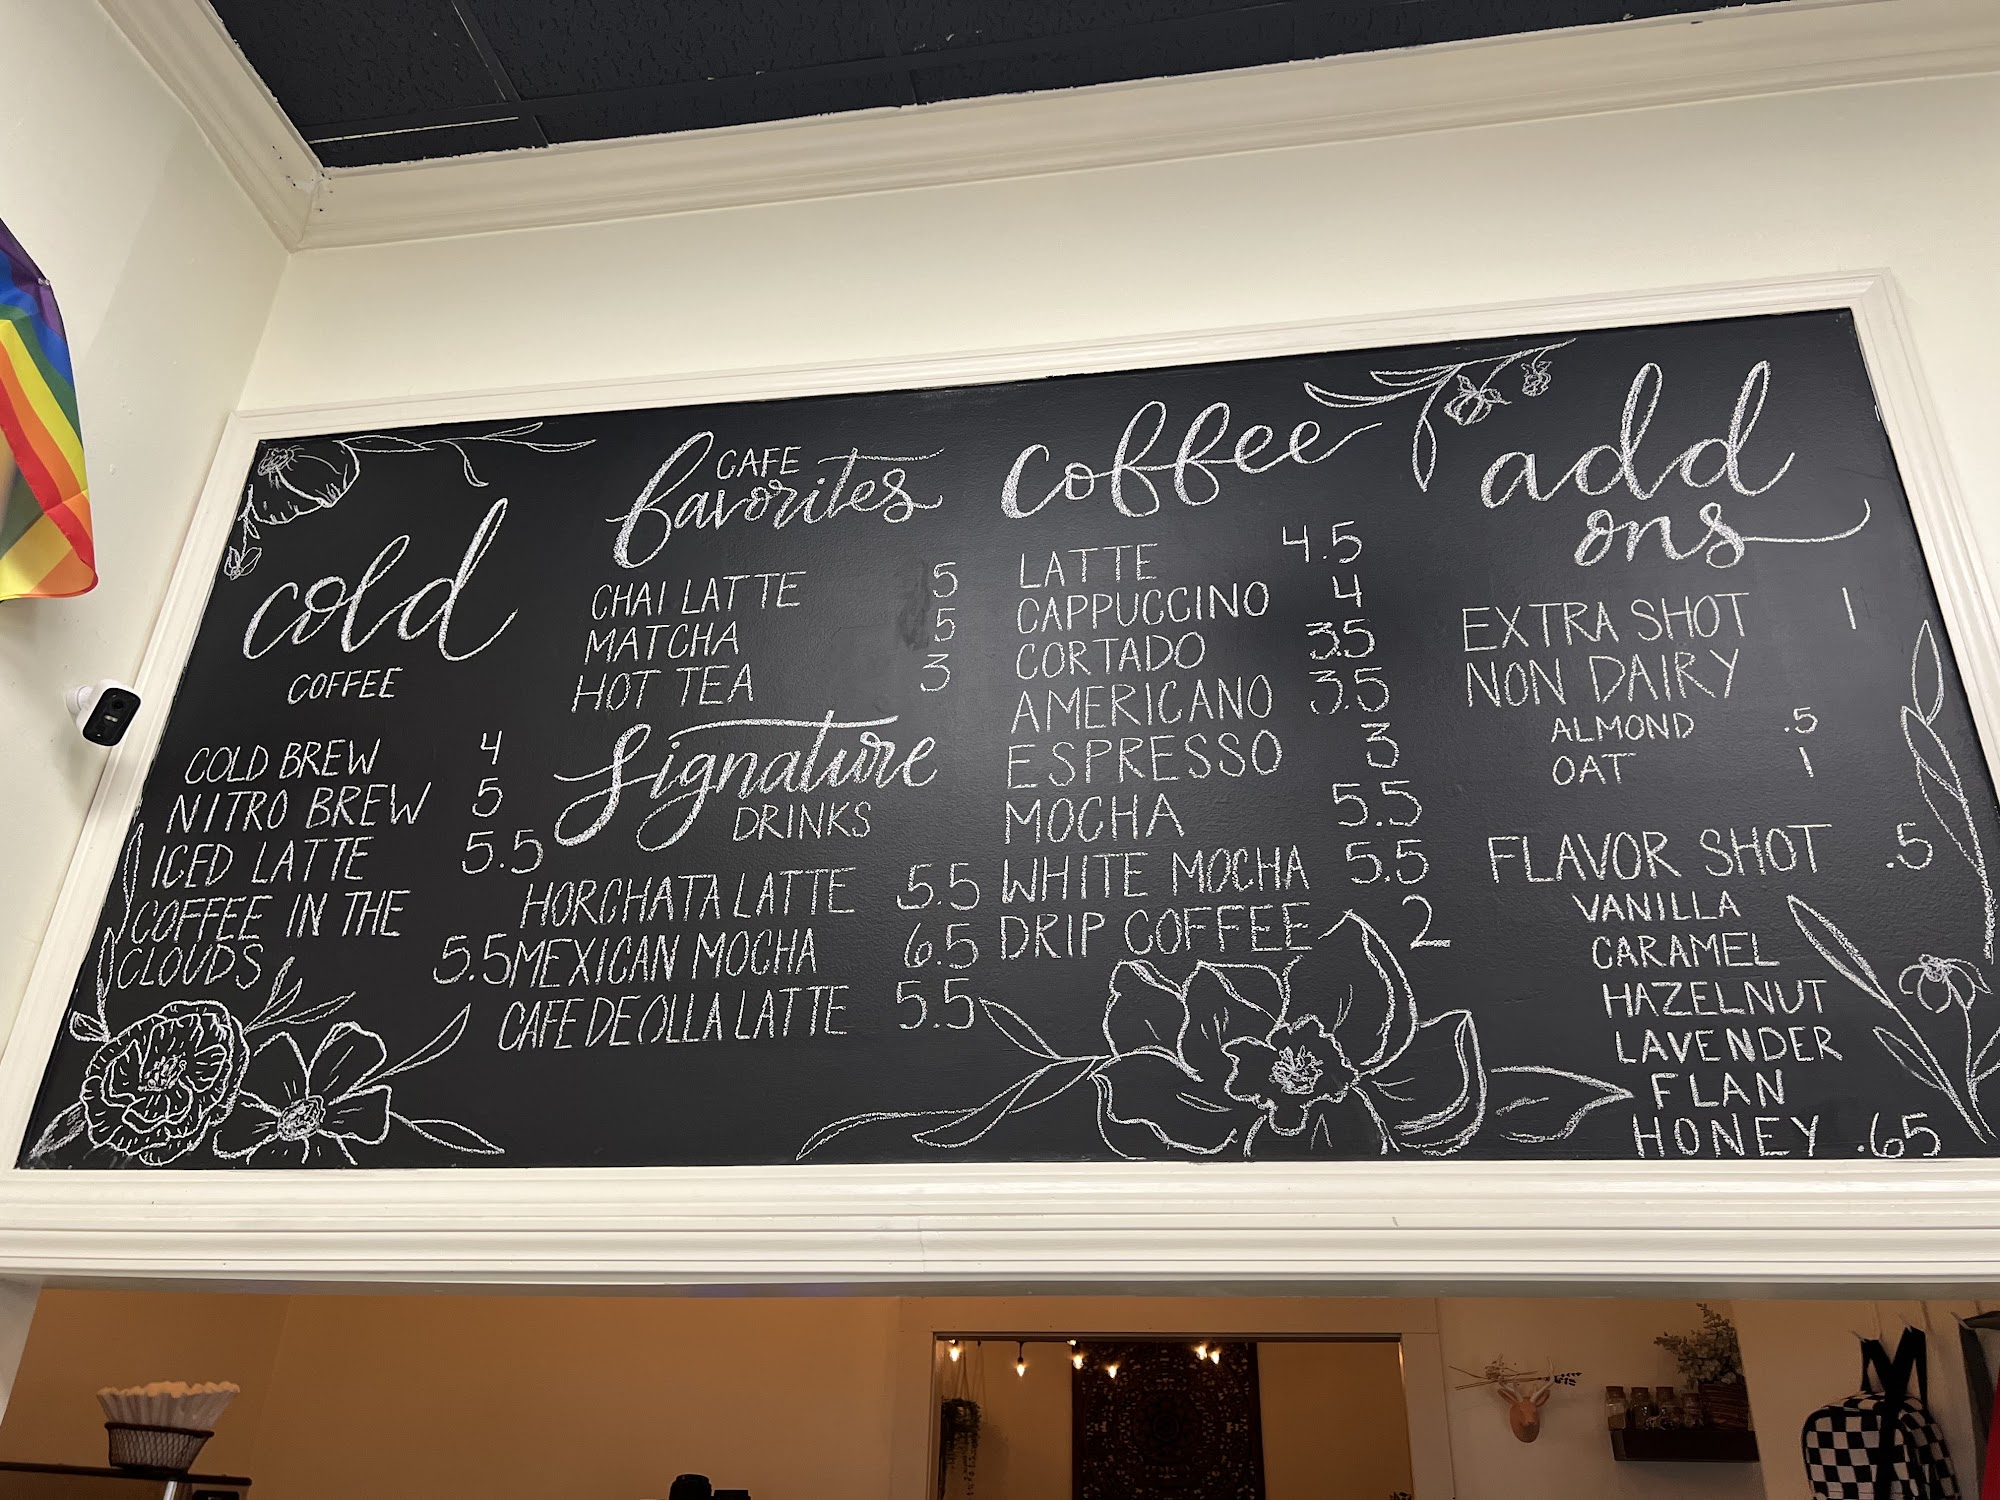 cold
COFFEE
COLD BREW 4
NITRO BREW 5
ICED LATTE 5.5
COFFEE IN THE
CLOUDS 5.5
CAFE
favorites
CHAI LATTE 5
MATCHA 5
HOT TEA 3
Signature
DRINKS
HORCHATA LATTE 5.5
MEXICAN MOCHA 6.5
CAFE DE OLLA LATTE 5.5
coffee
LATTE 4.5
CAPPUCCINO 4
CORTADO 3.5
AMERICANO 3.5
ESPRESSO 3
MOCHA 5.5
WHITE MOCHA 5.5
DRIP COFFEE 2
add
ons
EXTRA SHOT 1
NON DAIRY
ALMOND .5
OAT 1
FLAVOR SHOT .5
VANILLA
CARAMEL
HAZELNUT
LAVENDER
FLAN
HONEY .65